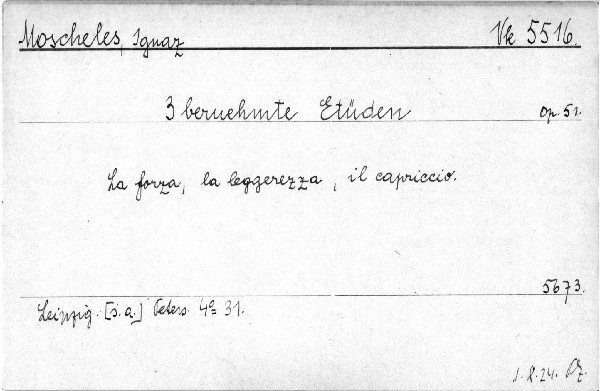 Moscheles, Ignaz Vk 5516.
3 beruehmte Etüden Op. 51.
La forza, la leggerezza, il capriccio.
5673.
Leipzig. [s.a.] Peters. 4° 31.
1.8.24.